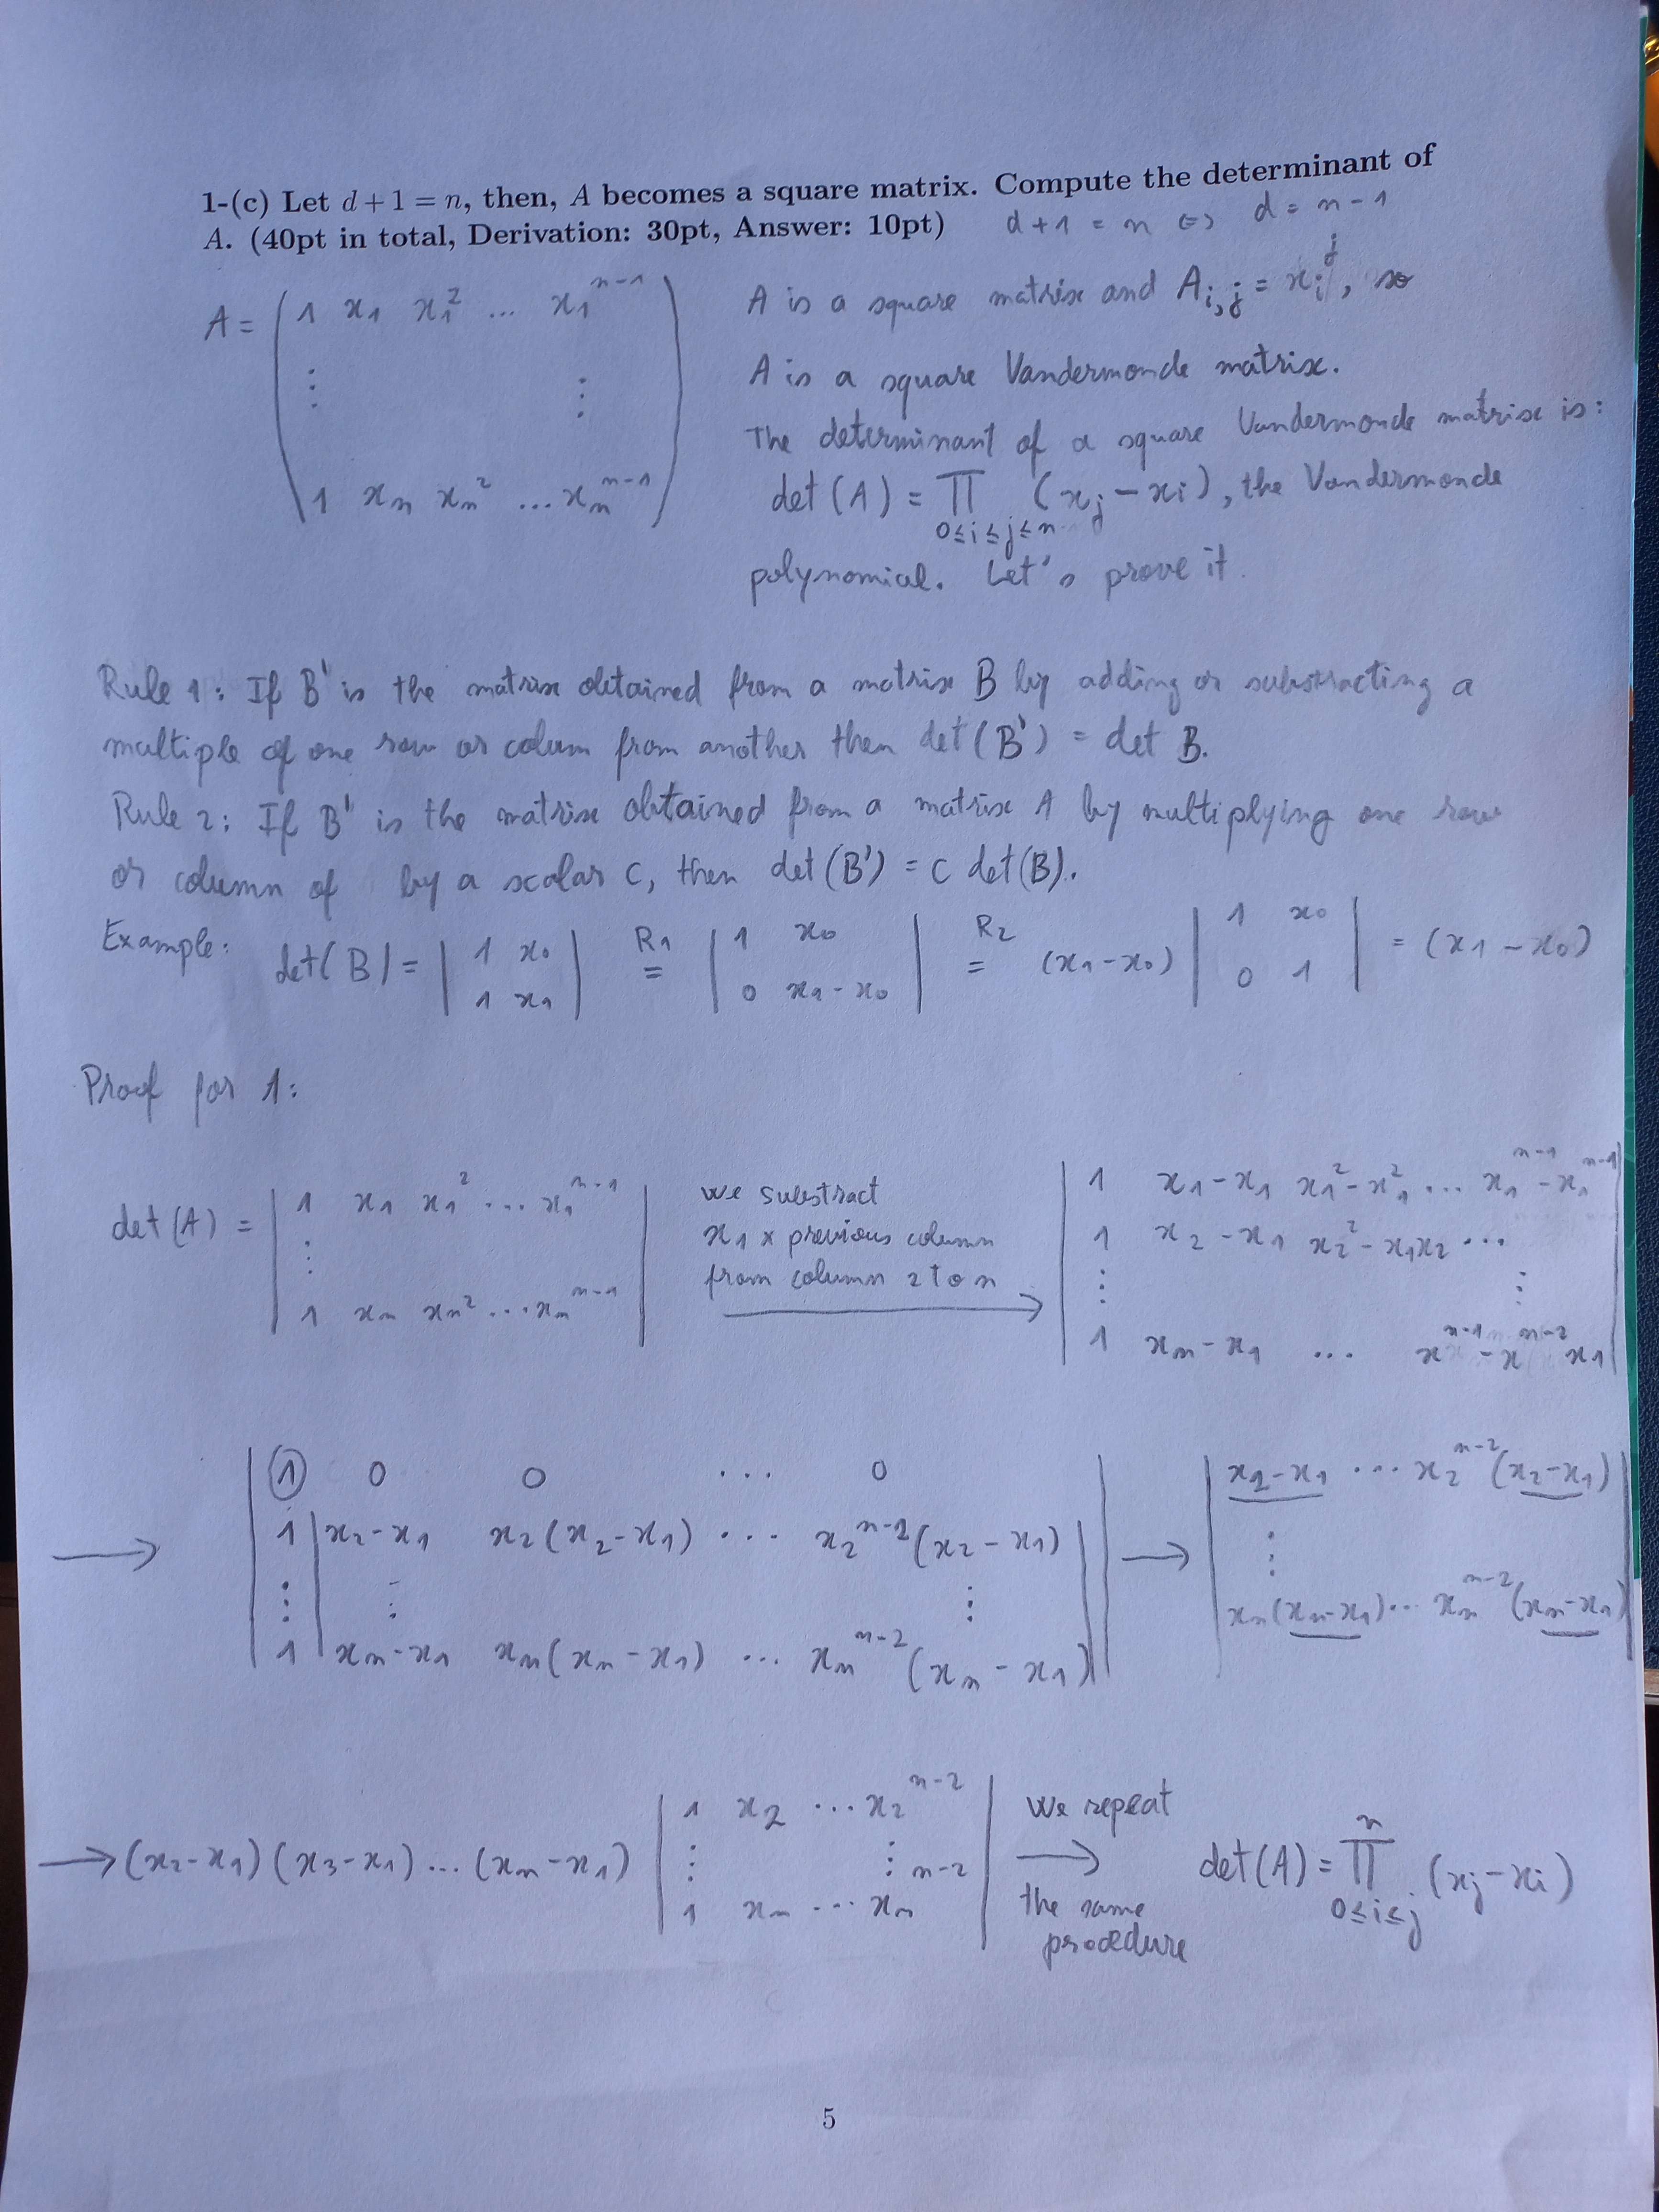 1-(c) Let d + 1 = n, then, A becomes a square matrix. Compute the determinant of
A. (40pt in total, Derivation: 30pt, Answer: 10pt) d + 1 = n ⇔ d = n - 1
A = ( 1 x_1 x_1^2 ... x_1^{n-1}
⋮ ⋮
1 x_n x_n^2 ... x_n^{n-1} )
A is a square matrix and A_{i,j} = x_i^j, so
A is a square Vandermonde matrix.
The determinant of a square Vandermonde matrix is:
det (A) = ∏_{0≤i≤j≤n} (x_j - x_i), the Vandermonde
polynomial. Let's prove it.
Rule 1: If B' is the matrix obtained from a matrix B by adding or substracting a
multiple of one row or colum from another then det(B') = det B.
Rule 2: If B' is the matrix obtained from a matrix A by multiplying one row
or column of by a scalar c, then det (B') = c det(B).
Example: det(B) = | 1 x_0 ; 1 x_1 | R1 = | 1 x_0 ; 0 x_1 - x_0 | R2 = (x_1 - x_0) | 1 x_0 ; 0 1 | = (x_1 - x_0)
Proof for 1:
det (A) = | 1 x_1 x_1^2 ... x_1^{n-1} ; ⋮ ; 1 x_n x_n^2 ... x_n^{n-1} |
we substract
x_1 × previous column
from column 2 to n
→
| 1 x_1 - x_1 x_1^2 - x_1^2 ... x_1^{n-1} - x_1^{n-1}
1 x_2 - x_1 x_2^2 - x_1x_2 ...
⋮ ⋮
1 x_n - x_1 ... x^{n-1} - x^{n-2} x_1 |
→ | 1 0 0 ... 0
1 | x_2 - x_1 x_2 (x_2 - x_1) ... x_2^{n-2} (x_2 - x_1) |
⋮ ⋮ ⋮
1 | x_n - x_1 x_n (x_n - x_1) ... x_n^{n-2} (x_n - x_1) |
→ | x_2 - x_1 ... x_2^{n-2} (x_2 - x_1)
⋮
x_n (x_n - x_1) ... x_n^{n-2} (x_n - x_1) |
→ (x_2 - x_1) (x_3 - x_1) ... (x_n - x_1) | 1 x_2 ... x_2^{n-2} ; ⋮ ⋮ ; 1 x_n ... x_n^{n-2} |
we repeat
→
the same
procedure
det (A) = ∏_{0≤i≤j}^{n} (x_j - x_i)
5